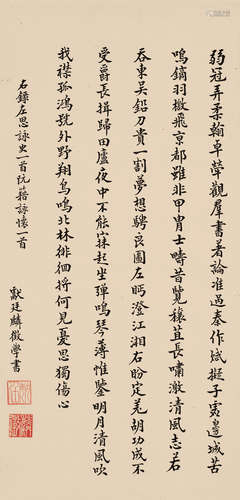 弱冠弄柔翰卓犖觀羣書著論準過秦作賦擬子虛邊城苦
鳴鏑羽檄飛京都雖非甲胄士疇昔覽穰苴長嘯激清風志若
無東吳鉛刀貴一割夢想騁良圖左眄澄江湘右盼定羌胡功成不
受爵長揖歸田廬夜中不能寐起坐彈鳴琴薄帷鑒明月清風吹
我襟孤鴻號外野翔鳥鳴北林徘徊將何見憂思獨傷心
右錄左思詠史一首阮藉詠懷一首
獻廷麟徵學書